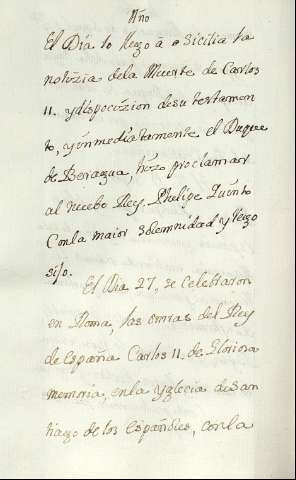 Año
El Dia 10 llego â Sicilia la
notizia dela Muerte de Carlos
11. y disposizion desu testamen
to, y inmediatamente el Duque
de Beragua, hizo proclamar
al nuebo Rey, Phelipe Quinto
Conla maior Solemnidad y rego
sijo.
El Dia 27, se celebraron
en Roma, las onrras del Rey
de España Carlos 11. de Gloriosa
memoria, enla Yglecia de San
tiago de los Españoles, conla